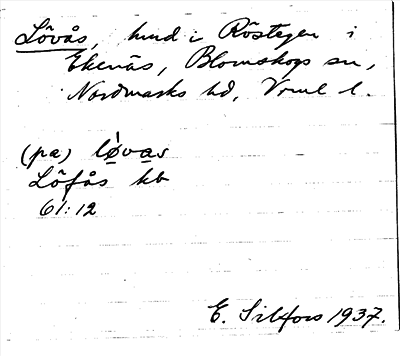 Lövås, hmd i Röstegen i
Ekenäs, Blomskogs sn,
Nordmarks hd, Vrml l.
(pa) lø̀vas
Löfås kb
61:12
E. Silfors 1937.